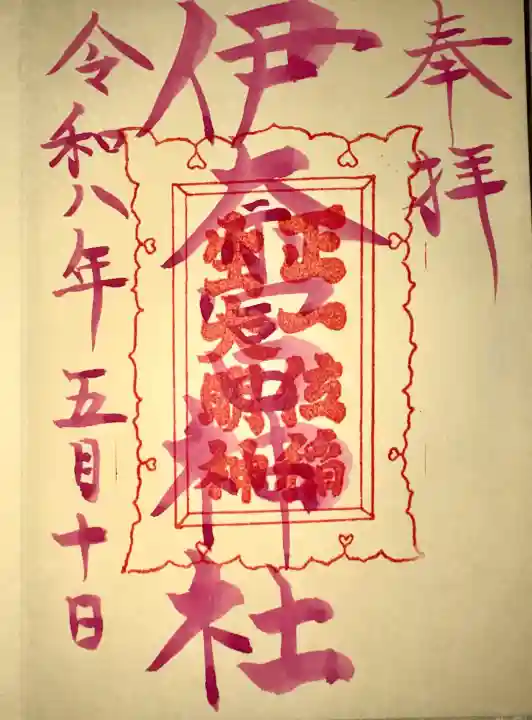 奉拝
伊奈冨神社
正一位稲
生大明神
令和八年五月十日